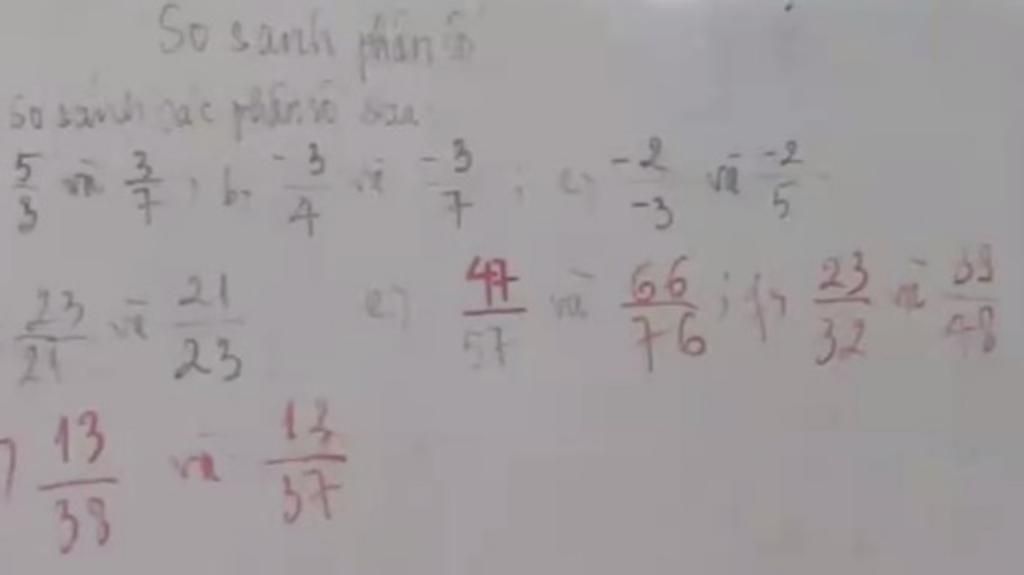 So sánh phân số
So sánh các phân số sau
5/3 và 3/7 ; b, -3/4 và -3/7 ; c, -2/-3 và -2/5
23/21 và 21/23 e) 47/57 và 66/76 ; f, 23/32 và 39/48
) 13/38 và 13/37